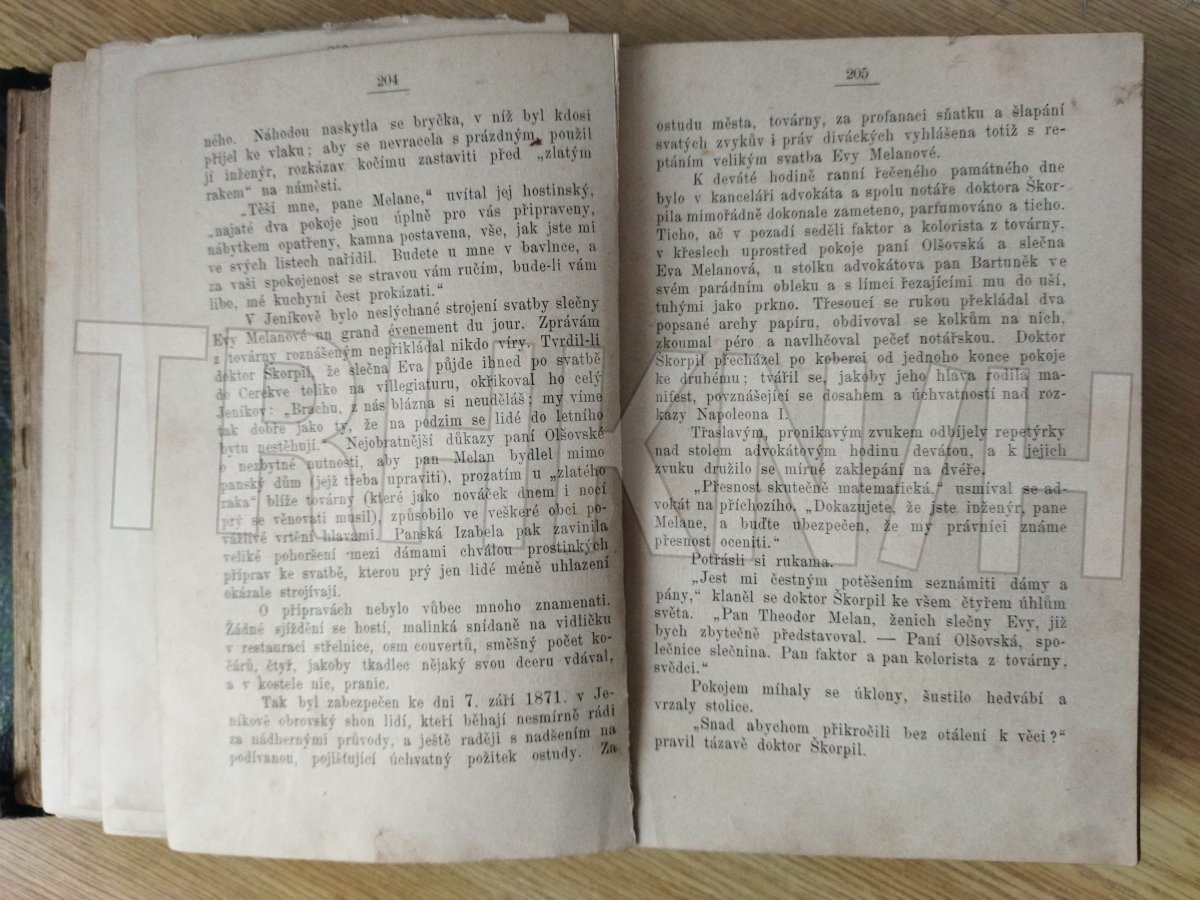 204
ného. Náhodou naskytla se bryčka, v níž byl kdosi
přijel ke vlaku; aby se nevracela s prázdným, použil
jí inženýr, rozkázav kočímu zastaviti před „zlatým
rakem“ na náměstí.
„Těší mne, pane Melane,“ uvítal jej hostinský,
„najaté dva pokoje jsou úplně pro vás připraveny,
nábytkem opatřeny, kamna postavena, vše, jak jste mi
ve svých listech nařídil. Budete u mne v bavlnce, a
za vaši spokojenost se stravou vám ručím, bude-li vám
libo, mé kuchyni čest prokázati.“
V Jeníkově bylo neslýchané strojení svatby slečny
Evy Melanové un grand évenement du jour. Zprávám
z továrny roznášeným nepřikládal nikdo víry. Tvrdil-li
doktor Škorpil, že slečna Eva půjde ihned po svatbě
do Cerekve toliko na villegiaturu, okřikoval ho celý
Jeníkov: „Brachu, z nás blázna si neuděláš; my víme
tak dobře jako ty, že na podzim se lidé do letního
bytu nestěhují.“ Nejobratnější důkazy paní Olšovské
o nezbytné nutnosti, aby pan Melan bydlel mimo
panský dům (jejž třeba upraviti), prozatím u „zlatého
raka“ blíže továrny (které jako nováček dnem i nocí
prý se věnovati musil), způsobilo ve veškeré obci po-
vážlivé vrtění hlavami. Panská Izabela pak zavinila
veliké pohoršení mezi dámami chválou prostinkých
příprav ke svatbě, kterou prý jen lidé méně uhlazení
okázale strojívají.
O přípravách nebylo vůbec mnoho znamenati.
Žádné sjíždění se hostí, malinká snídaně na vidličku
v restauraci střelnice, osm couvertů, směšný počet ko-
čárů, čtyř, jakoby tkadlec nějaký svou dceru vdával,
a v kostele nic, pranic.
Tak byl zabezpečen ke dni 7. září 1871. v Je-
níkově obrovský shon lidí, kteří běhají nesmírně rádi
za nádhernými průvody, a ještě raději s nadšením na
podívanou, pojišťující úchvatný požitek ostudy. Za
205
ostudu města, továrny, za profanaci sňatku a šlapání
svatých zvykův i práv diváckých vyhlášena totiž s re-
ptáním velikým svatba Evy Melanové.
K deváté hodině ranní řečeného památného dne
bylo v kanceláři advokáta a spolu notáře doktora Škor-
pila mimořádně dokonale zameteno, parfumováno a ticho.
Ticho, ač v pozadí seděli faktor a kolorista z továrny,
v křeslech uprostřed pokoje paní Olšovská a slečna
Eva Melanová, u stolku advokátova pan Bartuněk ve
svém parádním obleku a s límci řezajícími mu do uší,
tuhými jako prkno. Třesoucí se rukou překládal dva
popsané archy papíru, obdivoval se kolkům na nich,
zkoumal péro a navlhčoval pečeť notářskou. Doktor
Škorpil přecházel po koberci od jednoho konce pokoje
ke druhému; tvářil se, jakoby jeho hlava rodila ma-
nifest, povznášející se dosahem a úchvatností nad roz-
kazy Napoleona I.
Třaslavým, pronikavým zvukem odbíjely repetýrky
nad stolem advokátovým hodinu devátou, a k jejich
zvuku družilo se mírné zaklepání na dvéře.
„Přesnost skutečně matematická,“ usmíval se ad-
vokát na příchozího. „Dokazujete, že jste inženýr, pane
Melane, a buďte ubezpečen, že my právníci známe
přesnost oceniti.“
Potřásli si rukama.
„Jest mi čestným potěšením seznámiti dámy a
pány,“ klaněl se doktor Škorpil ke všem čtyřem úhlům
světa. „Pan Theodor Melan, ženich slečny Evy, již
bych zbytečně představoval. — Paní Olšovská, spo-
lečnice slečnina. Pan faktor a pan kolorista z továrny,
svědci.“
Pokojem míhaly se úklony, šustilo hedvábí a
vrzaly stolice.
„Snad abychom přikročili bez otálení k věci?“
pravil tázavě doktor Škorpil.